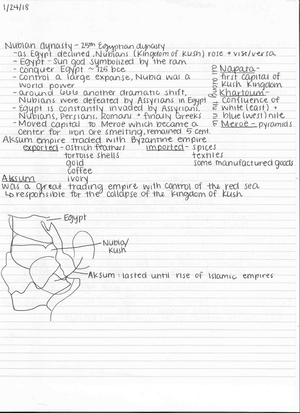 1/24/18
Nubian dynasty - 25th Egyptian dynasty
- as Egypt declined, Nubians (Kingdom of Kush) rose + vise/versa
- Egypt - Sun god symbolized by the ram
- conquer Egypt ~ 725 bce
- Control a large expanse, Nubia was a
world power
- around 600 another dramatic shift,
Nubians were defeated by Assyrians in Egypt
- Egypt is constantly invaded by Assyrians,
Nubians, Persians, Romans + finally Greeks
- Moved capital to Meroe which became a
center for iron ore smelting, remained 5 cent.
all along the nile
Napara -
first capital of
Kush Kingdom
Khartoum -
confluence of
white (east) +
blue (west) nile
Meroe - pyramids
Aksum empire traded with Byzantine empire
exported - ostrich feathers imported - spices
tortoise shells textiles
gold some manufactured goods
coffee
ivory
Aksum
was a great trading empire with control of the red sea
↳ responsible for the collapse of the Kingdom of Kush
Egypt
Nubia/
Kush
Aksum: lasted until rise of Islamic empires